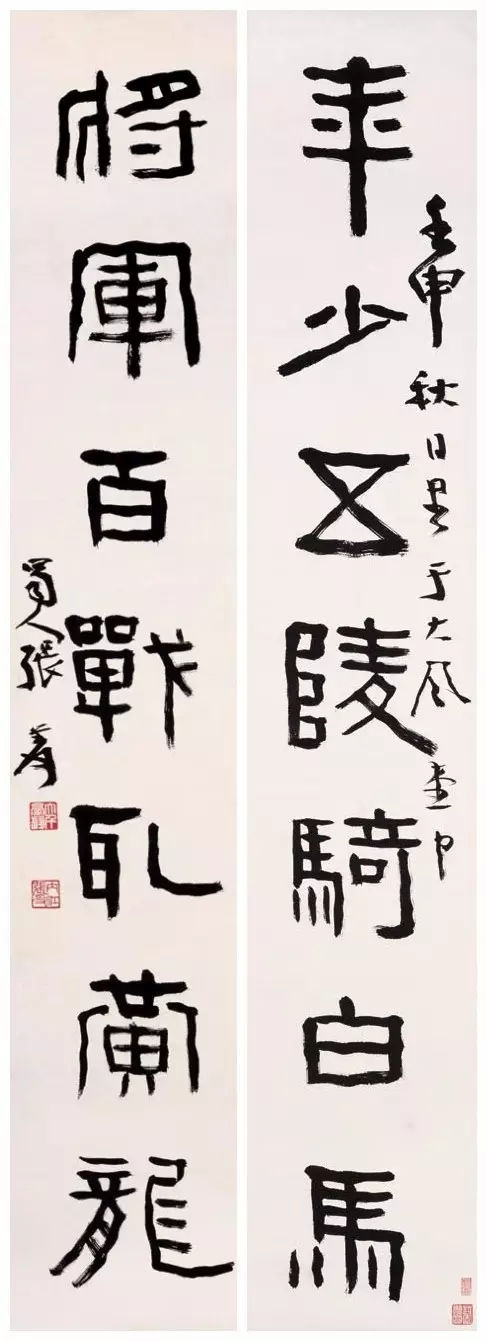 年少五陵騎白馬
壬申秋日書于大風堂中
將軍百戰黃龍
蜀人張爰